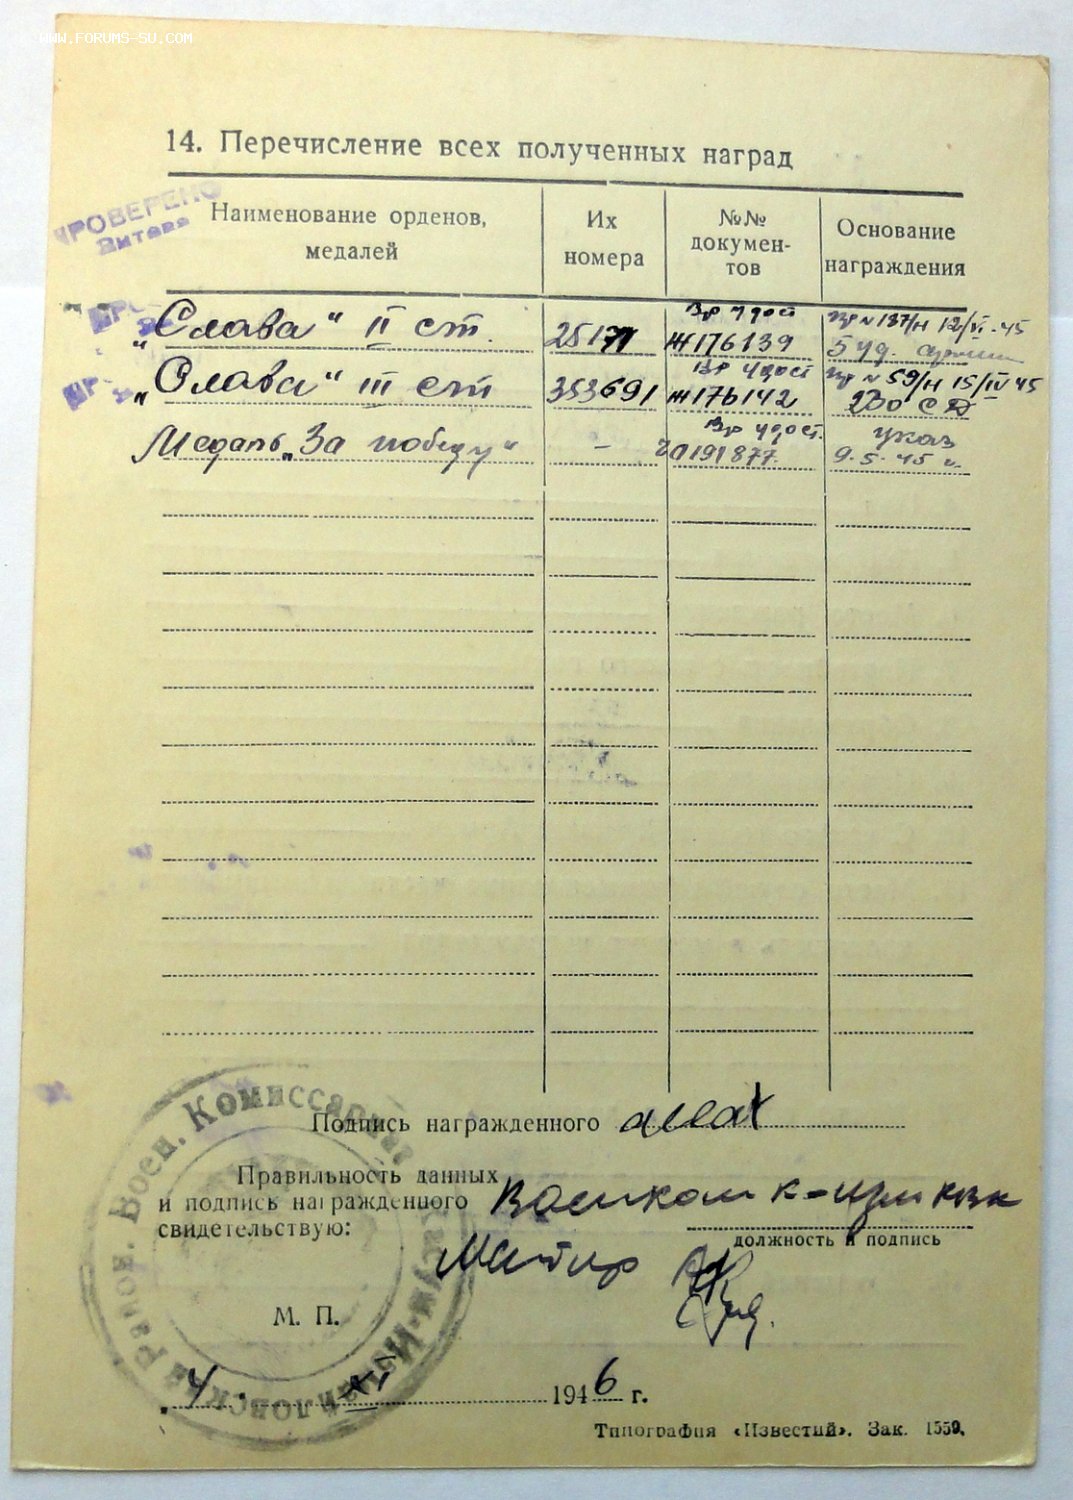 WWW.FORUMS-SU.COM
14. Перечисление всех полученных наград
ПРОВЕРЕНО
Наименование орденов, медалей
Их номера
№№ докумен-тов
Основание награждения
„Слава“ II ст. 25171 Вр удост Ж176139 Пр №187/н 12/VI-45 5 уд. армии
„Слава“ III ст 353691 Вр удост Ж176142 Пр №59/н 15/IV 45 230 СД
Медаль „За победу“ — Вр удост. 0191877 указ 9.5.45 г.
Подпись награженного
Правильность данных
и подпись награжденного
свидетельствую:
Военком
должность и подпись
Майор
М. П.
Район. Воен. Комиссариат
4 XI 1946 г.
Типография «Известий». Зак. 1559.